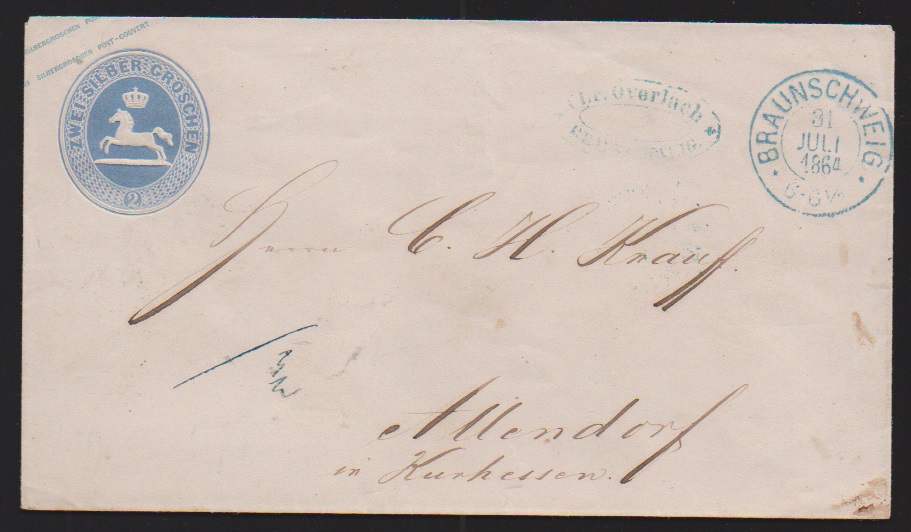 SILBERGROSCHEN POST-COUVERT
SILBERGROSCHEN POST-COUVERT
ZWEI SILBER GROSCHEN
2
Overlach
BRAUNSCHWEIG
31
JULI
1864
6-6½
Herrn C. H. Krauff.
Allendorf
in Kurhessen.